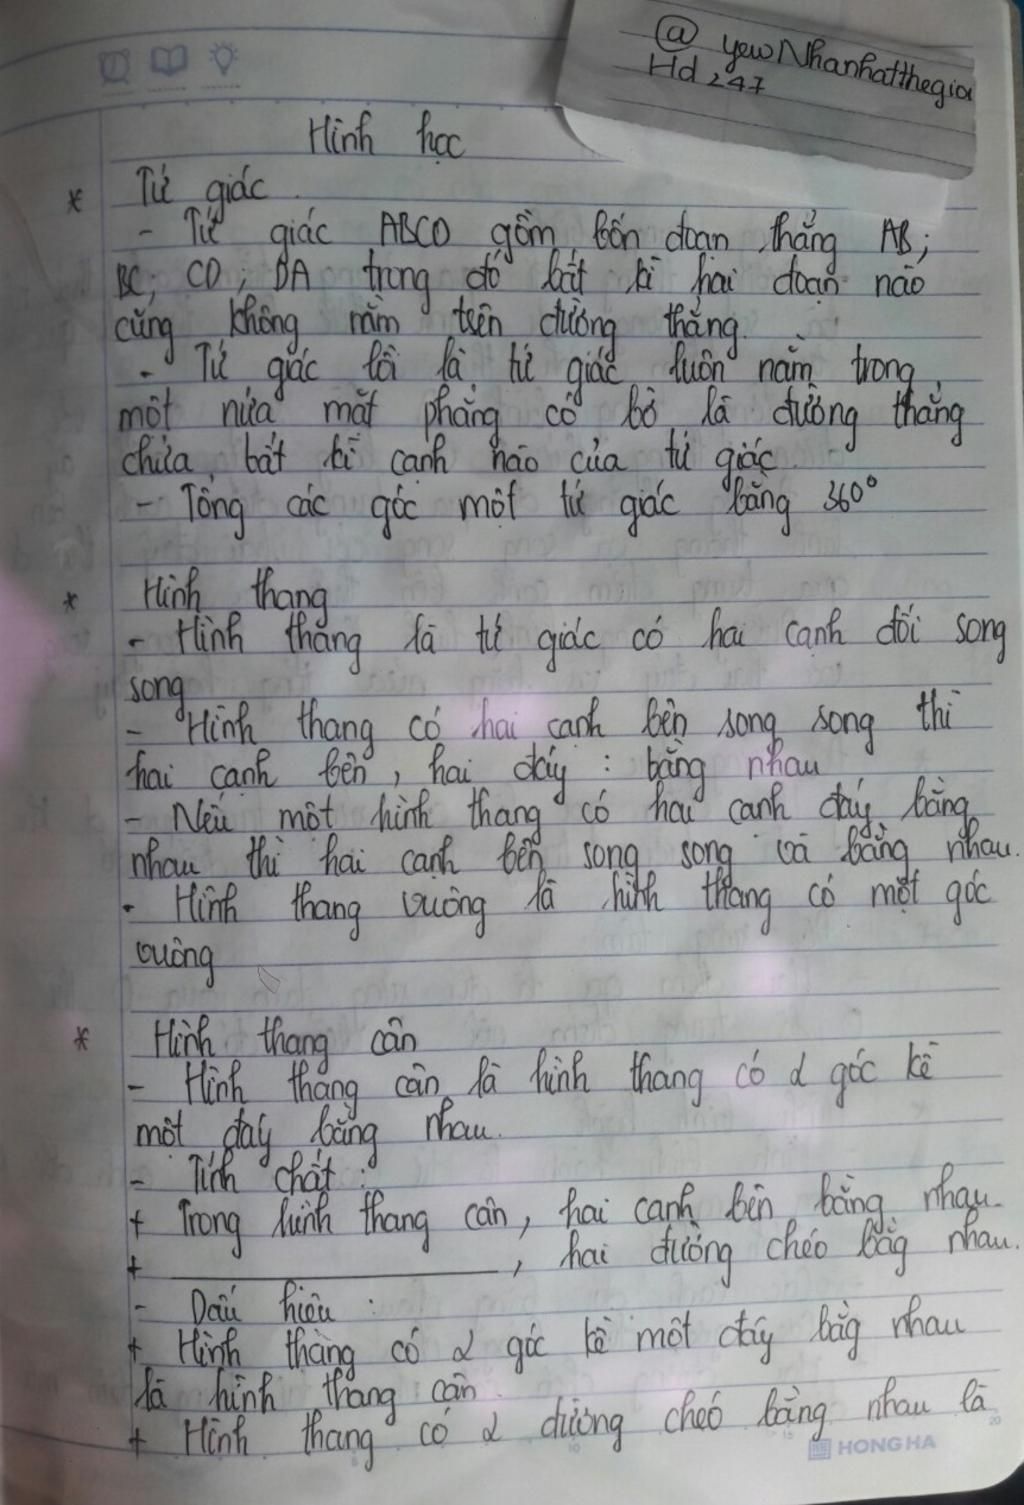 @ yewNhanhatthegioi
Hd 247
Hình học
* Tứ giác
- Tứ giác ABCD gồm bốn đoạn thẳng AB;
BC; CD; DA trong đó bất kì hai đoạn nào
cũng không nằm trên đường thẳng.
- Tứ giác lồi là tứ giác luôn nằm trong
một nửa mặt phẳng có bờ là đường thẳng
chứa bất kì cạnh nào của tứ giác.
- Tổng các góc một tứ giác bằng 360°
* Hình thang
- Hình thang là tứ giác có hai cạnh đối song
song
- Hình thang có hai cạnh bên song song thì
hai cạnh bên, hai đáy : bằng nhau
- Nếu một hình thang có hai cạnh đáy bằng
nhau thì hai cạnh bên song song và bằng nhau.
- Hình thang vuông là hình thang có một góc
vuông
* Hình thang cân
- Hình thang cân là hình thang có 2 góc kề
một đáy bằng nhau.
- Tính chất :
+ Trong hình thang cân, hai cạnh bên bằng nhau.
+ ____________, hai đường chéo bằg nhau.
- Dấu hiệu :
+ Hình thang có 2 góc kề một đáy bằg nhau
là hình thang cân.
+ Hình thang có 2 đường chéo bằng nhau là
HONG HA